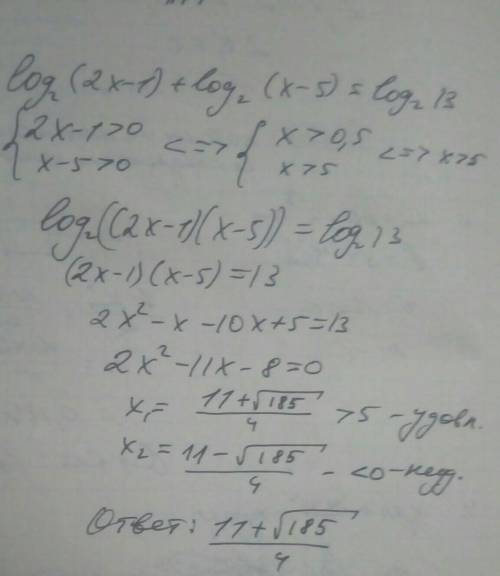 log₂(2x-1)+log₂(x-5)=log₂13
{2x-1>0 <=> {x>0,5 <=> x>5
x-5>0 x>5
log₂((2x-1)(x-5))=log₂13
(2x-1)(x-5)=13
2x²-x-10x+5=13
2x²-11x-8=0
x₁= (11+√185)/4 >5 - удовл.
x₂= (11-√185)/4 - <0-неуд.
Ответ: (11+√185)/4